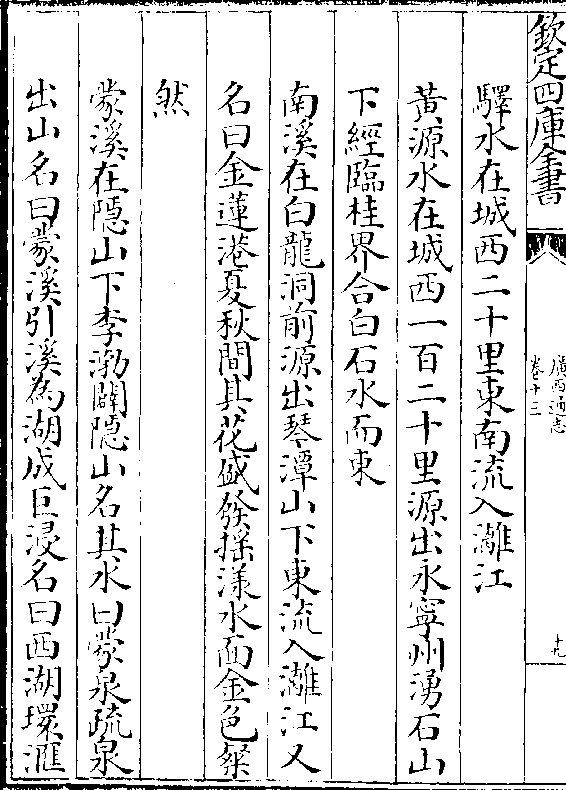 欽定四庫全書
廣西通志
卷十三
十九
驛水在城西二十里東南流入灕江
黃源水在城西一百二十里源出永寧州湧石山
下經臨桂界合白石水而東
南溪在白龍洞前源出琴潭山下東流入灕江又
名曰金蓮港夏秋間其花盛發搖漾水面金色粲
然
蒙溪在隱山下李渤闢隱山名其水曰蒙泉疏泉
出山名曰蒙溪引溪為湖成巨浸名曰西湖環滙